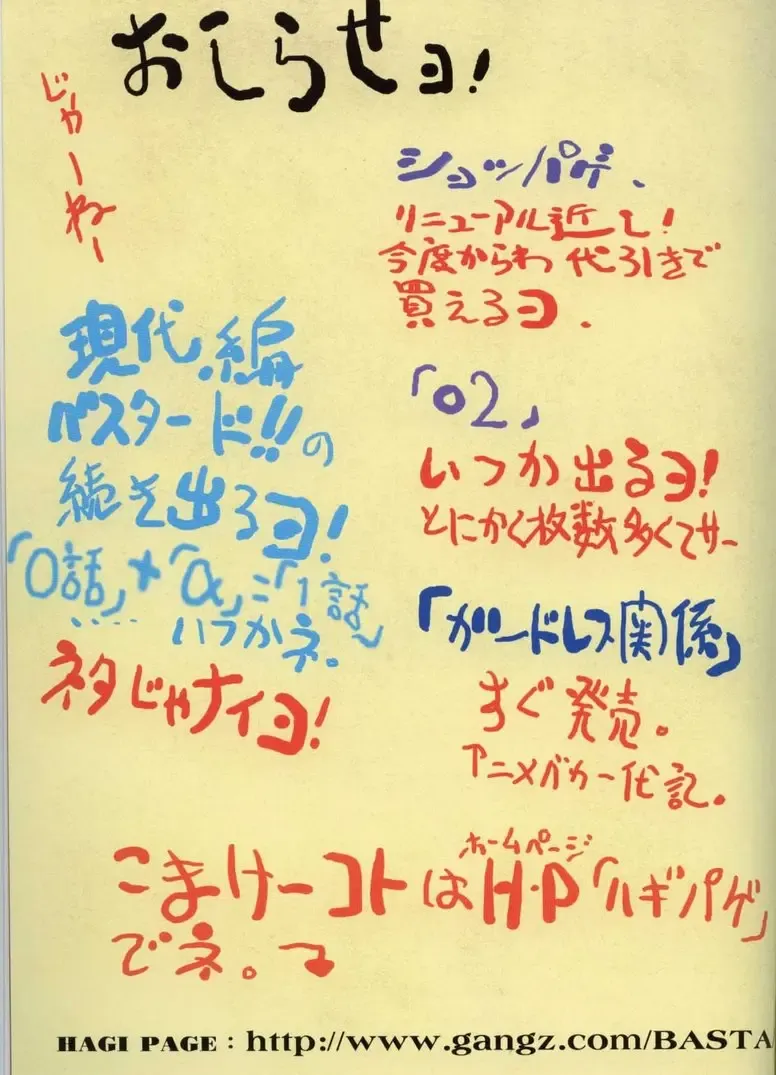 おしらせョ!
ショッパゲ、
リニューアル近し!
今度からわ 代引きで
買えるヨ、
「02」
いつか出るヨ!
とにかく枚数多くてサー
「ガードレス関係」
すぐ発売。
アニメバカ一代記。
現代編
バスタード!!の
続き出るヨ!
「0話」+「α」=「1話」
……いつかネ。
ネタじゃナイヨ!
じゃーねー
こまけーコトはH・P「ハギパゲ」
ホームページ
でネ。
HAGI PAGE : http://www.gangz.com/BASTA